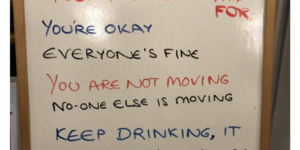 FOR
YOU'RE OKAY
EVERYONE'S FINE
YOU ARE NOT MOVING
NO-ONE ELSE IS MOVING
KEEP DRINKING, IT